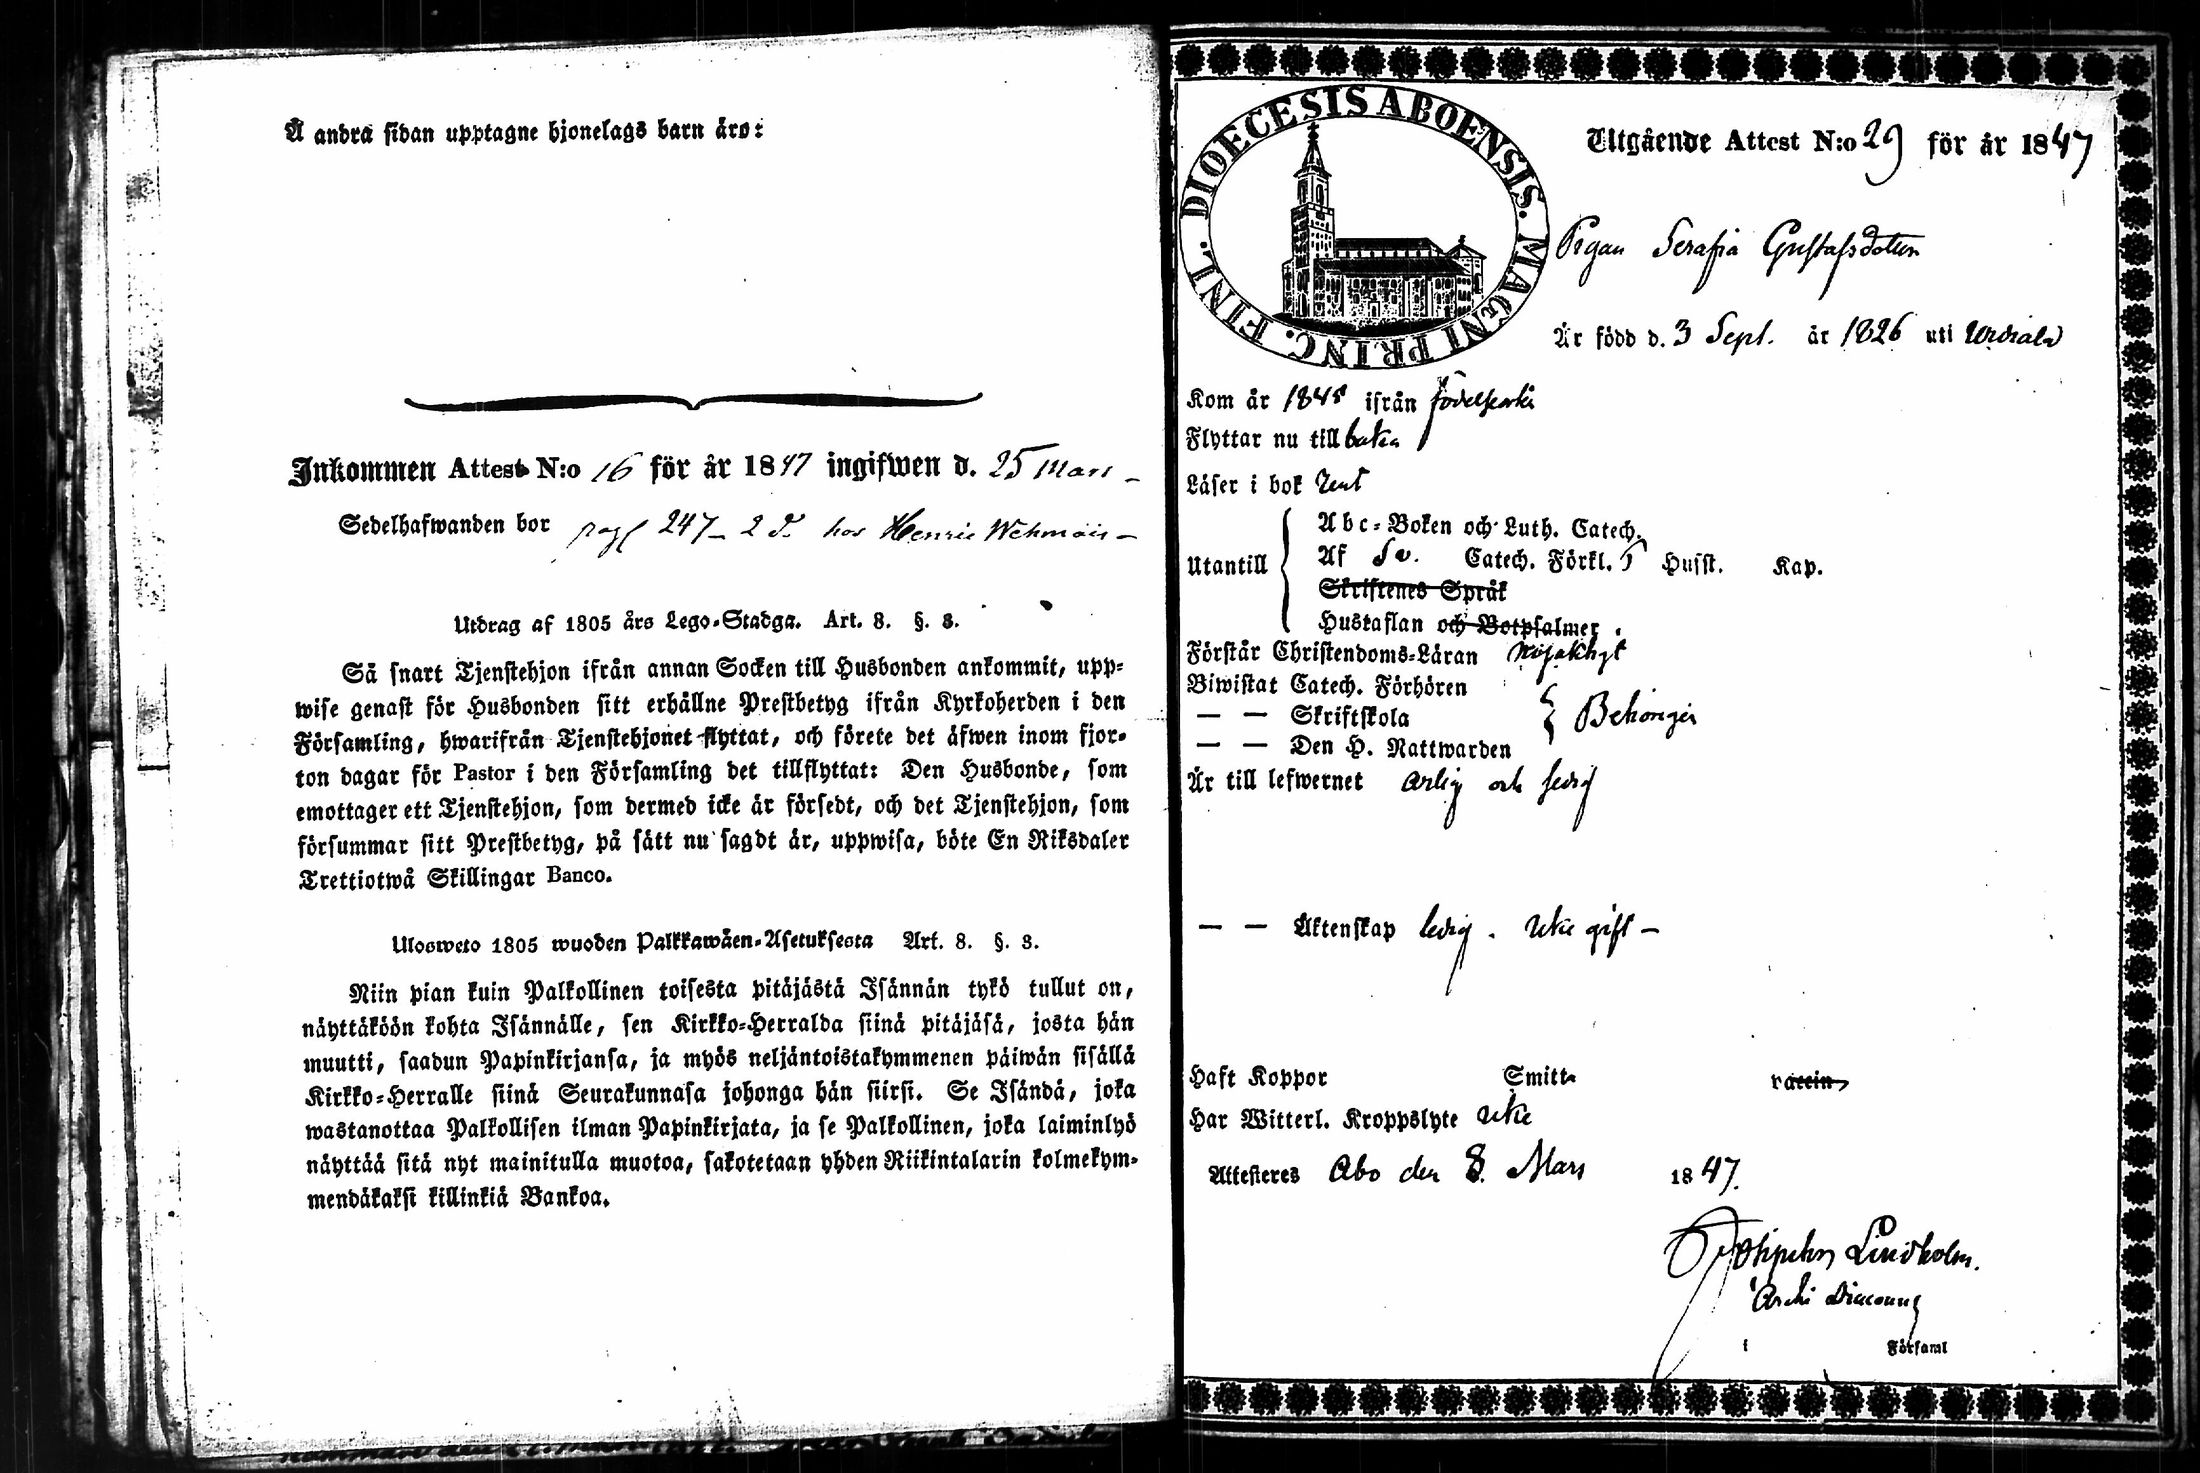 Å andra sidan upptagne hjonelags barn äro:
Inkommen Attest N:o 16 för år 1847 ingifwen d. 25 Mars –
Sedelhafwanden bor pag 247 – 2 d. hos Henric
Utdrag af 1805 års Lego-Stadga. Art. 8. §. 3.
Så snart Tjenstehjon ifrån annan Socken till Husbonden ankommit, upp-
wise genast för Husbonden sitt erhållne Prestbetyg ifrån Kyrkoherden i den
Församling, hwarifrån Tjenstehjonet flyttat, och förete det äfwen inom fjor-
ton dagar för Pastor i den Församling det tillflyttat: Den Husbonde, som
emottager ett Tjenstehjon, som dermed icke är försedt, och det Tjenstehjon, som
försummar sitt Prestbetyg, på sätt nu sagdt är, uppwisa, böte En Riksdaler
Trettiotwå Skillingar Banco.
Ulosweto 1805 wuoden Palkkawäen-Asetuksesta Art. 8. §. 3.
Niin pian kuin Palkollinen toisesta pitäjästä Isännän tykö tullut on,
näyttäköön kohta Isännälle, sen Kirkko-Herralda siinä pitäjäsä, josta hän
muutti, saadun Papinkirjansa, ja myös neljäntoistakymmenen päiwän sisällä
Kirkko-Herralle siinä Seurakunnasa johonga hän siirsi. Se Isändä, joka
wastanottaa Palkollisen ilman Papinkirjata, ja se Palkollinen, joka laiminlyö
näyttää sitä nyt mainitulla muotoa, sakotetaan yhden Riikintalarin kolmekym-
mendäkaksi killinkiä Bankoa.
DIOECESIS ABOENSIS. MAGNI PRINC. FINL.
Utgående Attest N:o 29 för år 1847
Pigan Serafia Gustafsdotter
Är född d. 3 Sept. år 1826 uti Urdiala
Kom år 1845 ifrån
Flyttar nu till baka
Läser i bok rent
Utantill
Abc-Boken och Luth. Catech.
Af Sv. Catech. Förkl. Husst. Kap.
Skriftenes Språk
Hustaflan och Botpsalmer.
Förstår Christendoms-Läran nöjaktigt
Biwistat Catech. Förhören
— — Skriftskola Behörigen
— — Den H. Nattwarden
Är till lefwernet ärlig och
— — Äktenskap ledig. icke gift –
Haft Koppor Smitt- vaccin
Har Witterl. Kroppslyte icke
Attesteres Åbo den 8. Mars 1847.
Lindholm.
Archi Diaconus
i Församl